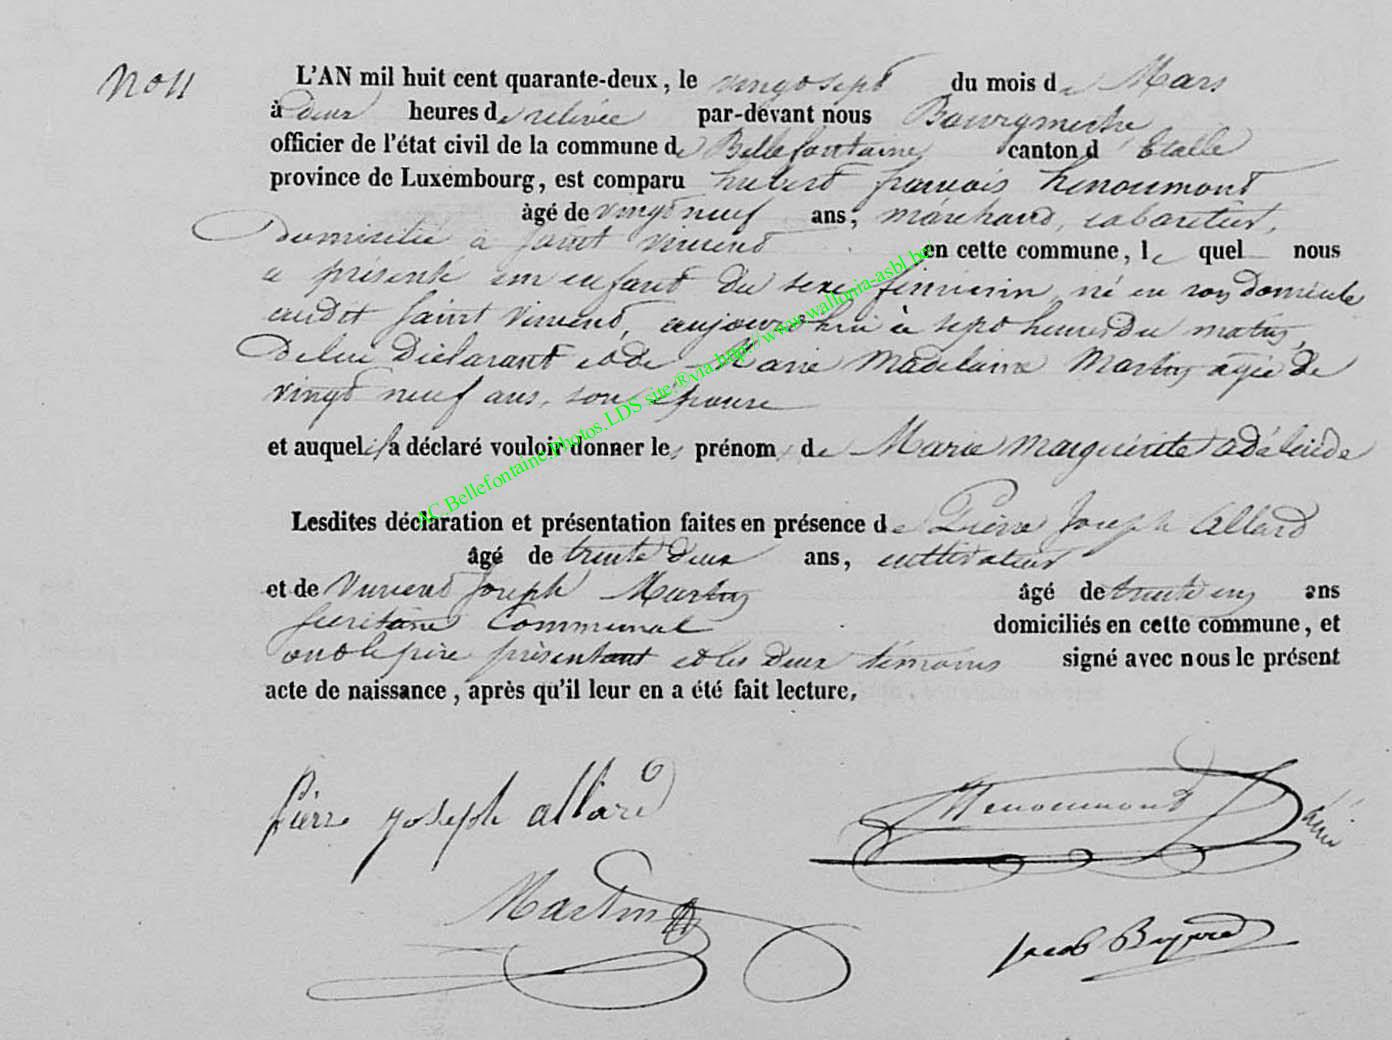 N° 11
L'AN mil huit cent quarante-deux, le vingt sept du mois de Mars
à deux heures de relevée par-devant nous Bourgmestre
officier de l'état civil de la commune de Bellefontaine canton d' Etalle
province de Luxembourg, est comparu hubert françois henoumont
âgé de vingt neuf ans, marchand, cabaretier,
Domicilié à Saint Vincent en cette commune, le quel nous
a présenté un enfant du sexe féminin, né en son domicile
audit Saint Vincent, aujourd'hui à sept heures du matin,
De lui Déclarant et de Marie Madelaine Martin agée de
vingt neuf ans, son épouse
et auquel il a déclaré vouloir donner les prénoms de Marie Marguerite adélaide
Lesdites déclaration et présentation faites en présence de Pierre Joseph Allard
âgé de trente deux ans, cultivateur
et de Vincent Joseph Martin âgé de trente un ans
Secrétaire Communal domiciliés en cette commune, et
ont le père présentant et les deux témoins signé avec nous le présent
acte de naissance, après qu'il leur en a été fait lecture.
pierre joseph allard
Henoumont
Martin
Jacob
AC.Bellefontaine.Photos.LDS site.®via.http://www.wallonia-asbl.be/